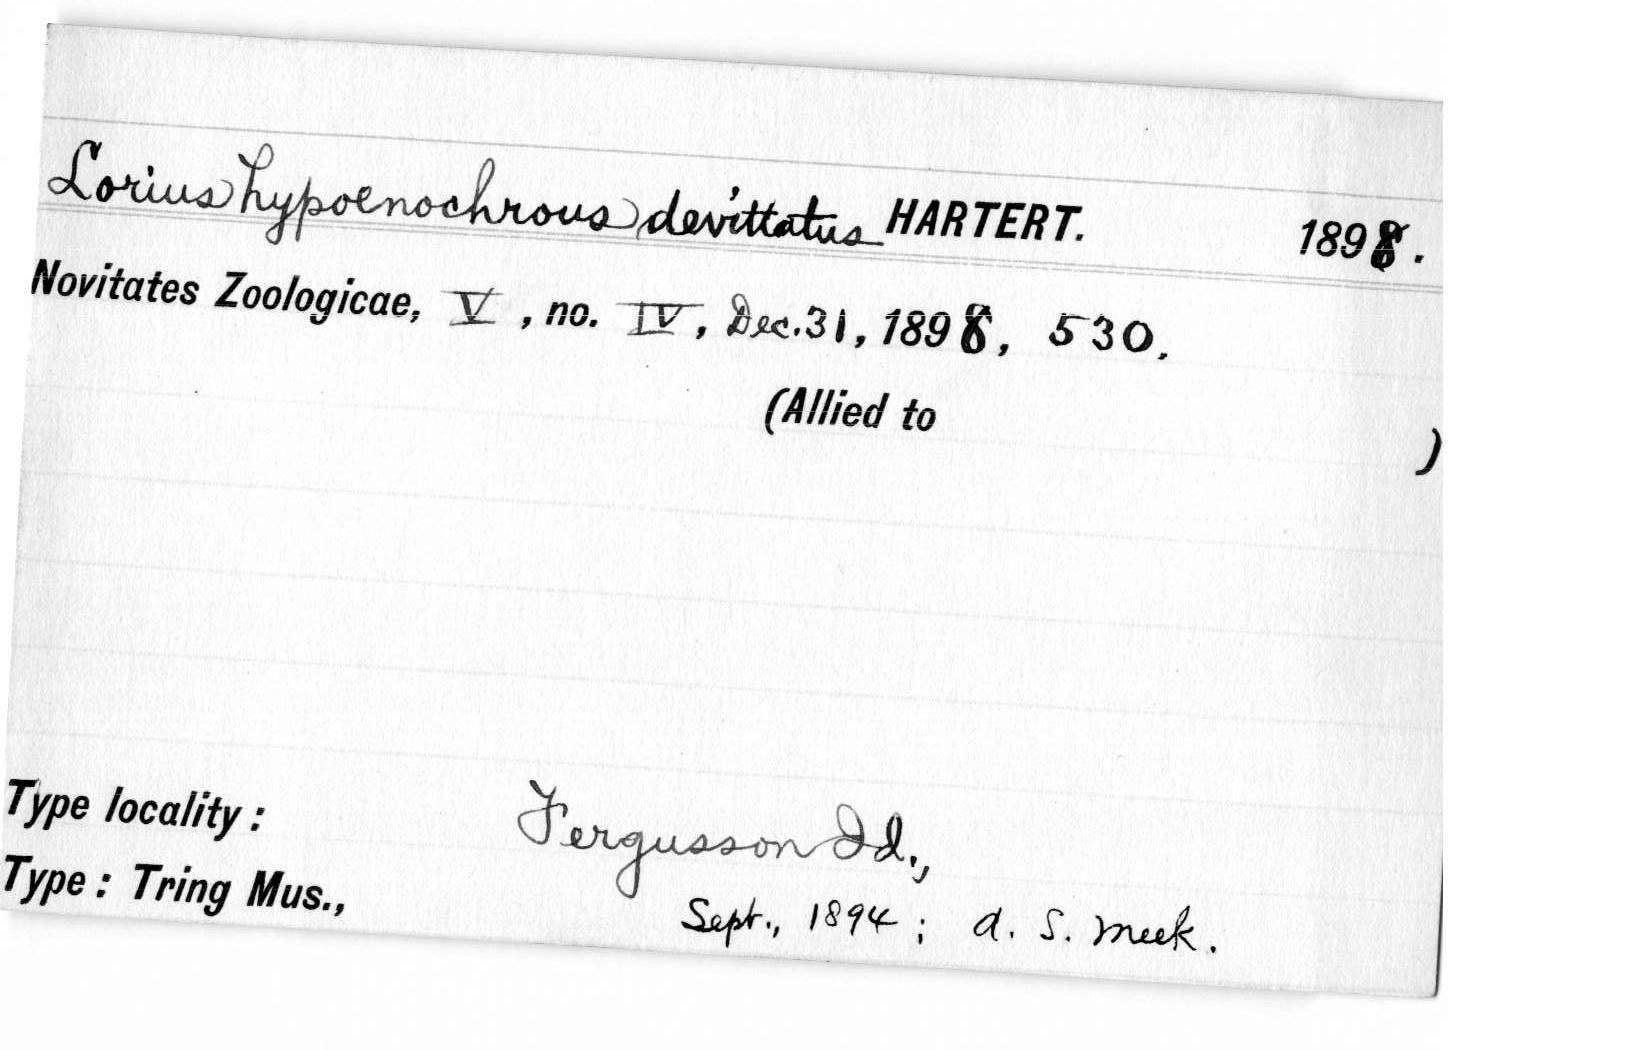 Lorius hypoenochrous devittatus HARTERT. 1898.
Novitates Zoologicae, V, no. IV, Dec. 31, 1898, 530.
(Allied to )
Type locality: Fergusson Id.,
Type: Tring Mus., Sept., 1894; A. S. Meek.